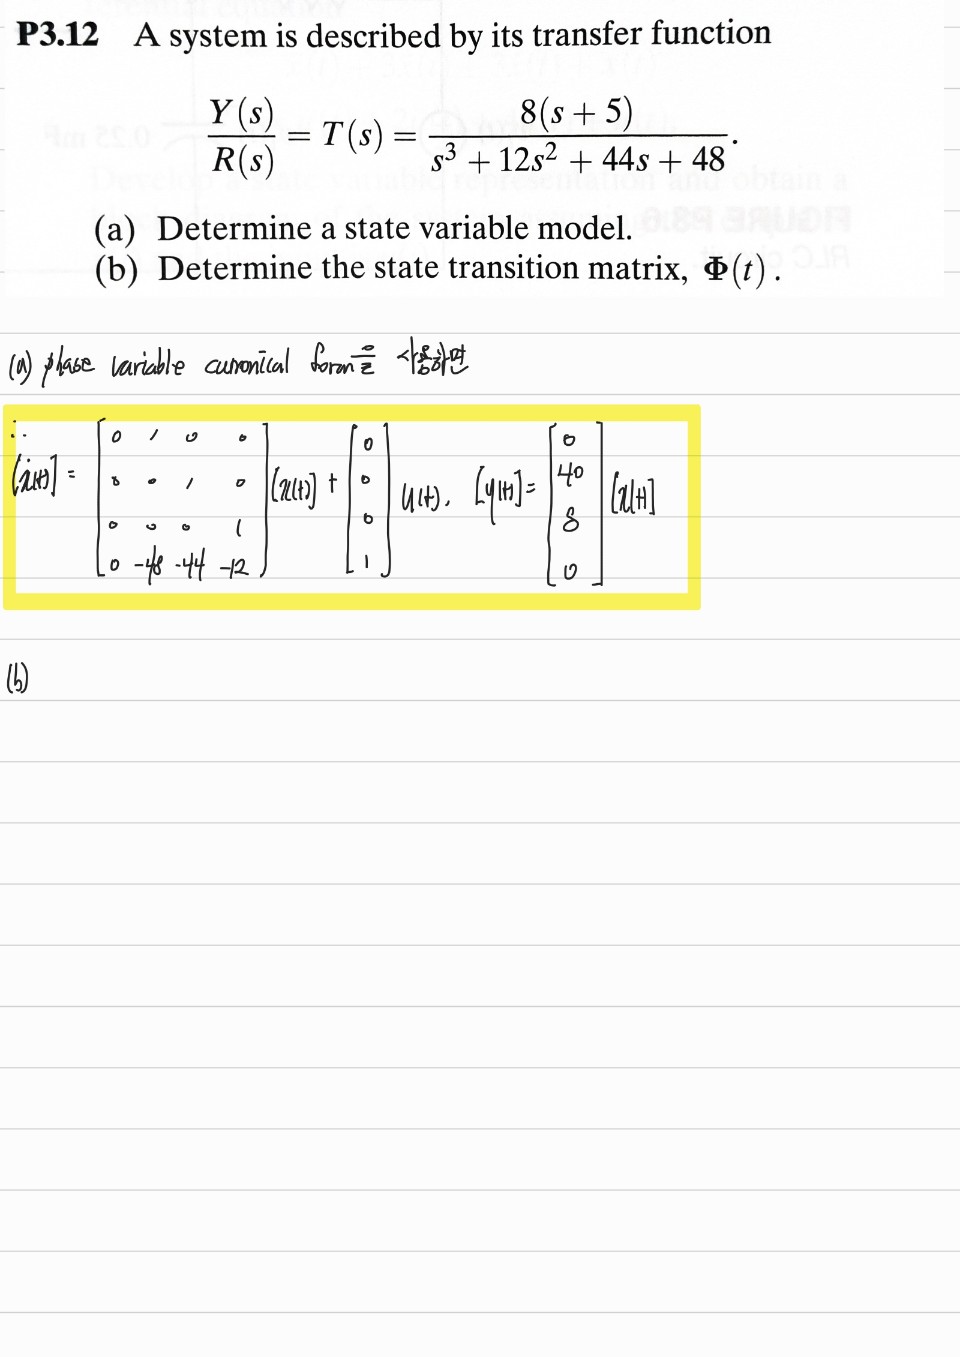 P3.12 A system is described by its transfer function
Y(s)/R(s) = T(s) = 8(s + 5)/(s³ + 12s² + 44s + 48).
(a) Determine a state variable model.
(b) Determine the state transition matrix, Φ(t).
(a) phase variable canonical form을 사용하면
∴
[ẋ(t)] = [0 1 0 0; 0 0 1 0; 0 0 0 1; 0 -48 -44 -12] [x(t)] + [0; 0; 0; 1] u(t), [y(t)] = [0; 40; 8; 0] [x(t)]
(b)